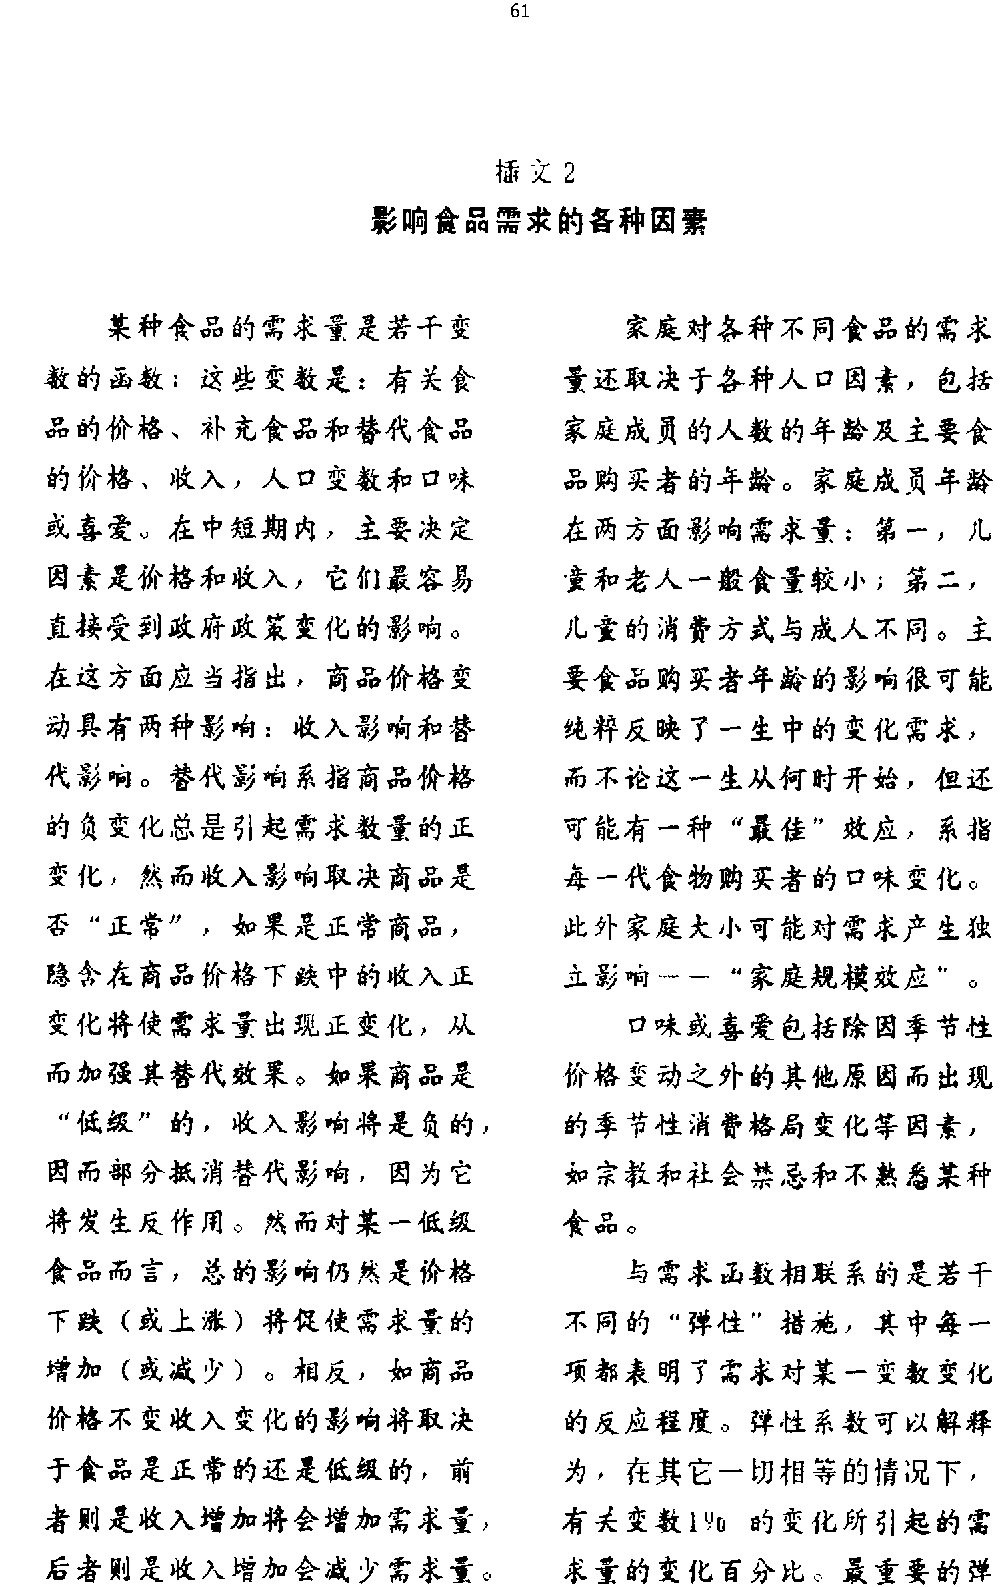 61
插文2
影响食品需求的各种因素
某种食品的需求量是若干变
数的函数；这些变数是：有关食
品的价格、补充食品和替代食品
的价格、收入，人口变数和口味
或喜爱。在中短期内，主要决定
因素是价格和收入，它们最容易
直接受到政府政策变化的影响。
在这方面应当指出，商品价格变
动具有两种影响：收入影响和替
代影响。替代影响系指商品价格
的负变化总是引起需求数量的正
变化，然而收入影响取决商品是
否“正常”，如果是正常商品，
隐含在商品价格下跌中的收入正
变化将使需求量出现正变化，从
而加强其替代效果。如果商品是
“低级”的，收入影响将是负的，
因而部分抵消替代影响，因为它
将发生反作用。然而对某一低级
食品而言，总的影响仍然是价格
下跌（或上涨）将促使需求量的
增加（或减少）。相反，如商品
价格不变收入变化的影响将取决
于食品是正常的还是低级的，前
者则是收入增加将会增加需求量，
后者则是收入增加会减少需求量。
家庭对各种不同食品的需求
量还取决于各种人口因素，包括
家庭成员的人数的年龄及主要食
品购买者的年龄。家庭成员年龄
在两方面影响需求量：第一，儿
童和老人一般食量较小；第二，
儿童的消费方式与成人不同。主
要食品购买者年龄的影响很可能
纯粹反映了一生中的变化需求，
而不论这一生从何时开始，但还
可能有一种“最佳”效应，系指
每一代食物购买者的口味变化。
此外家庭大小可能对需求产生独
立影响——“家庭规模效应”。
口味或喜爱包括除因季节性
价格变动之外的其他原因而出现
的季节性消费格局变化等因素，
如宗教和社会禁忌和不熟悉某种
食品。
与需求函数相联系的是若干
不同的“弹性”措施，其中每一
项都表明了需求对某一变数变化
的反应程度。弹性系数可以解释
为，在其它一切相等的情况下，
有关变数1% 的变化所引起的需
求量的变化百分比。最重要的弹